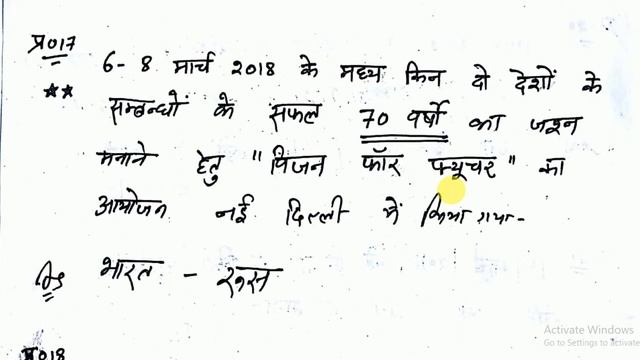 प्र017 6-8 मार्च 2018 के मध्य किन दो देशों के
** सम्बन्धों के सफल 70 वर्षों का जश्न
मनाने हेतु "विजन फॉर फ्यूचर" का
आयोजन नई दिल्ली में किया गया-
भारत - रूस
Activate Windows
Go to Settings to activate
018